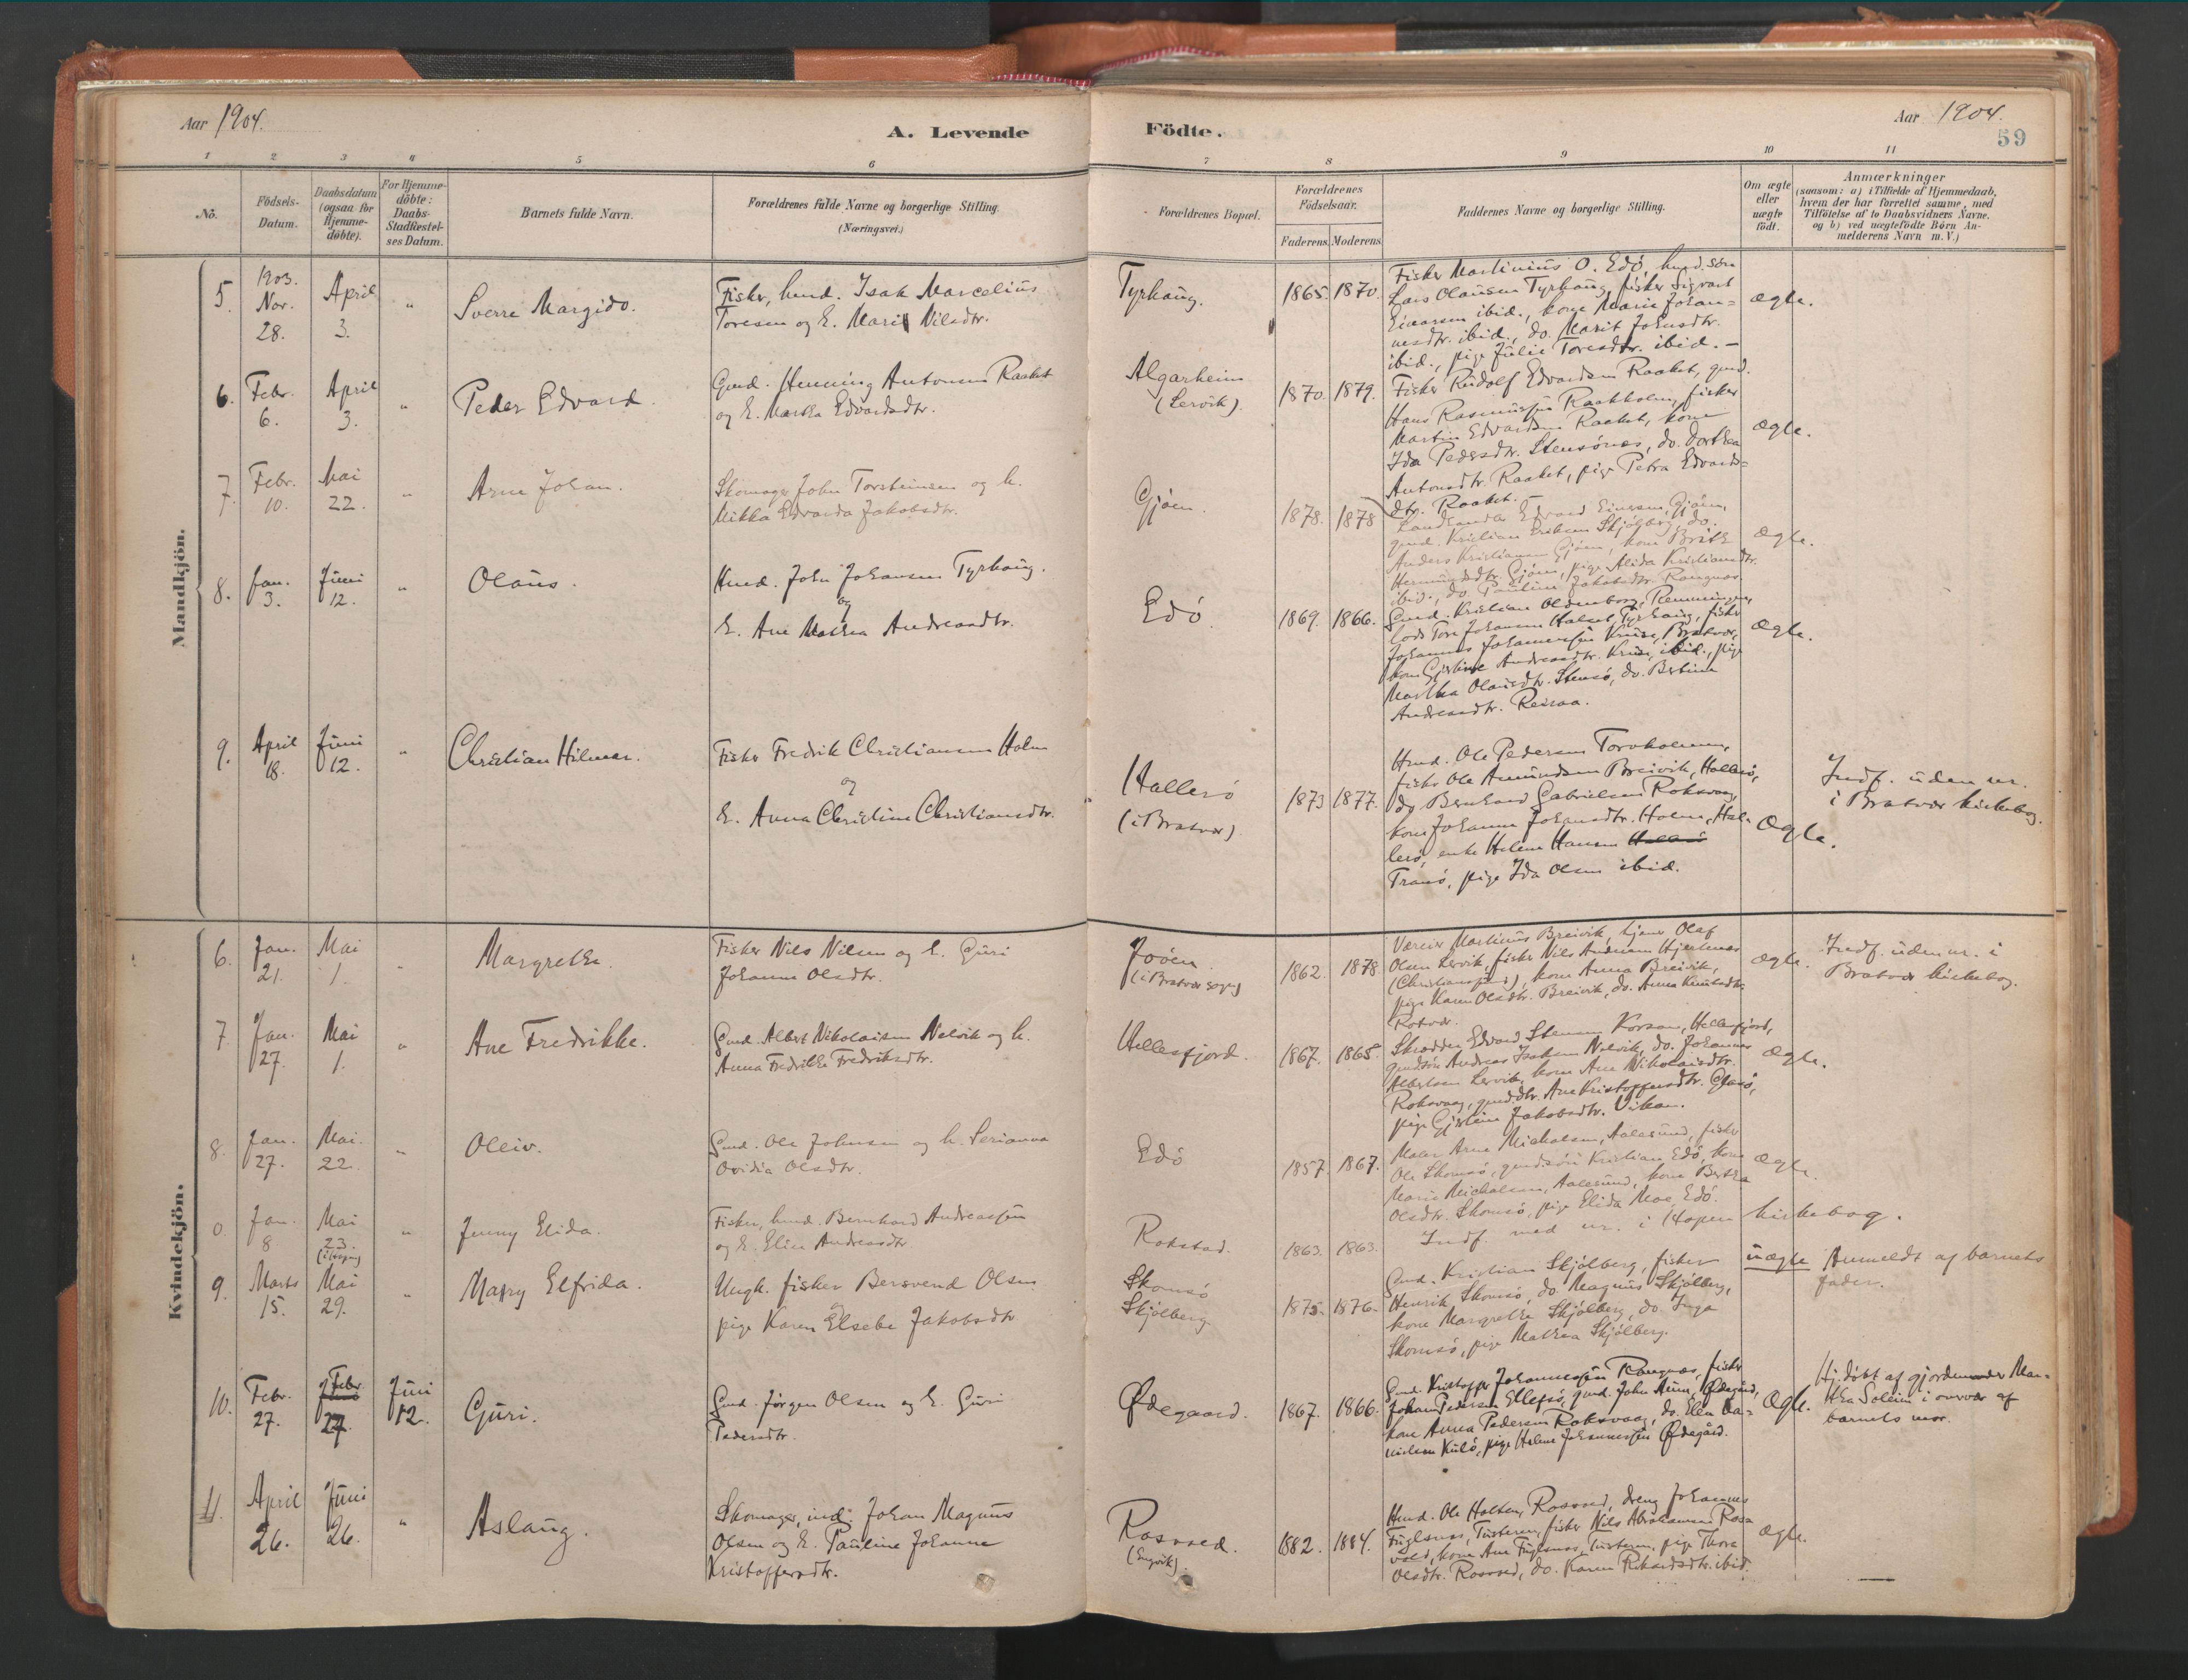 Aar 1904.
A. Levende
Födte.
Aar 1904.
59
1 2 3 4 5 6 7 8 9 10 11
No.
Födsels-
Datum.
Daabsdatum
(ogsaa for
Hjemme-
döbte).
For Hjemme-
döbte:
Daabs-
Stadfæstel-
ses Datum.
Barnets fulde Navn.
Forældrenes fulde Navne og borgerlige Stilling.
(Næringsvei.)
Forældrenes Bopæl.
Forældrenes
Födselsaar.
Faderens. Moderens.
Faddernes Navne og borgerlige Stilling.
Om ægte
eller
uægte
födt.
Anmærkninger
(saasom: a) i Tilfælde af Hjemmedaab,
hvem der har forrettet samme, med
Tilföielse af to Daabsvidners Navne.
og b) ved uægtefödte Börn An-
melderens Navn m. V.)
Mandkjön.
5.
1903.
Nov.
28.
April
3.
"
Sverre Margido.
Fisker, husd. Isak Marcelius
Toresen og H. Marit Nilsdtr.
Tyrhaug.
1865. 1870.
Fisker Martinius O. Edö, husd. sön
Lars Olausen Tyrhaug, fisker Sigvart
Einarsen ibid., kone Marie Johan-
nesdtr. ibid., do. Marit Johnsdtr.
ibid., pige Julie Toresdtr. ibid. -
ægte.
6.
Febr.
6.
April
3.
"
Peder Edvard.
Gmd. Henning Antonsen Raaket
og H. Martha Edvardsdtr.
Algarheim
(Lervik).
1870. 1879.
Fisker Rudolf Edvardsen Raaket, gmd.
Hans Rasmussen Raakholm, fisker
Martin Edvardsen Raaket, kone
Ida Pedersdtr. Stensönes, do. Dorthea
Antonsdtr. Raaket, pige Petra Edvards-
dtr. Raaket.
ægte.
7.
Febr.
10.
Mai
22.
"
Arne Johan.
Skomager John Torsteinsen og h.
Mikka Edvarda Jakobsdtr.
Gjöen.
1878. 1878
Landhandler Edvard Einarsen, Gjöen,
gmd. Kristian Eriksen Skjölberg, do.
Anders Kristiansen Gjöen, kone Brit
Hermundsdtr. Gjöen, pige Alida Kristiansdtr.
ibid., do. Pauline Jakobsdtr. Rangnes.
ægte.
8.
Jan.
3.
Juni
12.
"
Olaus.
Husd. John Johansen Tyrhaug.
og
H. Ane Mathea Andreasdtr.
Edö.
1869. 1866.
Gmd. Kristian Oldenborg, Remmingen,
lods Tore Johansen Halset, Tyrhaug, fisker
Johannes Johannessen Kruse, Bratvær,
kone Gjertine Andreasdtr. Kruse, ibid., pige
Martha Olausdtr. Stensö, do. Bertine
Andreasdtr. Reiraa.
ægte.
9.
April
18.
Juni
12.
"
Christian Hilmar.
Fisker Fredrik Christiansen Holm
og
H. Anna Christine Christiansdtr.
Hallerö
(i Bratvær).
1873 1877.
Husd. Ole Pedersen Torvholmen,
fisker Ole Amundsen Breivik, Hallerö,
do. Bernhard Gabrielsen Roksvaag,
kone Johanna Johansdtr. Holm, Hal-
lerö, enke Helene Hansen
Tranö, pige Ida Olsen ibid.
Ægte.
Indf. uden nr.
i Bratvær kirkebog.
Kvindekjön.
6.
Jan.
21.
Mai
1.
"
Margrethe.
Fisker Nils Nilsen og h. Guri
Johanna Olsdtr.
Jöen.
(i Bratvær sogn)
1862. 1878
Værseier Martinus Breivik, tjener Olaf
Olsen Lervik, fisker Nils Andersen Hjertenes
(Christianssund), kone Anna Breivik,
pige Karen Olsdtr. Breivik, do. Anna Knutsdtr.
Rotvær.
ægte.
Indf. uden nr. i
Bratvær kirkebog.
7
Jan.
27.
Mai
1.
"
Ane Fredrikke.
Gmd. Albert Nikolaisen Nelvik og h.
Anna Fredrikke Fredriksdtr.
Hellesfjord.
1867. 1865.
Skrædder Edvard Stensen Korsan, Hellesfjord,
gmdsön Andreas Isaksen Nelvik, do. Johannes
Albertsen Lervik, kone Ane Nikolaisdtr.
Roksvaag, gmd.dtr. Ane Kristoffersdtr. Glasö,
pige Gjertine Jakobsdtr. Vikan.
ægte.
8.
Jan.
27.
Mai.
22.
"
Oleiv.
Gmd. Ole Johnsen og h. Serianna
Ovidia Olsdtr.
Edö
1857. 1867.
Maler Arne Michalsen, Aalesund, fisker
Ole Skomsö, gmdsön Kristian Edö, kone
Marie Michalsen, Aalesund, kone Berthea
Olsdtr. Skomsö, pige Elida Moe, Edö.
ægte.
0.
Jan.
8
Mai
23.
(i Hopen)
"
Jenny Elida.
Fisker, husd. Bernhard Andreassen
og H. Elise Andreasdtr.
Rokstad.
1863. 1863.
Indf. med nr. i Hopen kirkebog.
9.
Marts
15.
Mai
29.
"
Mary Elfrida.
Ungk. fisker Bersvend Olsen
og
pige Karen Elsebe Jakobsdtr
Skomsö
Skjölberg
1875. 1876.
Gmd. Kristian Skjölberg, fisker
Henrik Skomsö, do. Magnus Skjölberg,
kone Margrethe Skjölberg, do. Inga
Skomsö, pige Mathea Skjölberg.
uægte
Anmeldt af barnets
fader.
10.
Febr.
27.
Febr.
27.
Juni
12.
Guri.
Gmd. Jörgen Olsen og H. Guri
Pedersdtr.
Ødegaard.
1867. 1866.
Gmd. Kristoffer Johannessen Rangnes, fisker
Johan Pedersen Ellefsö, gmd. John Aune, Ødegård,
kone Anna Pedersen Roksvaag, do. Ellen Da-
nielsen Kulö, pige Helene Johannessen Ødegård.
Ægte.
Hj. döbt af gjordemoder Mar-
tha Soleim i overvær af
barnets mor.
11.
April
26.
Juni
26.
"
Aslaug.
Skomager, ind. Johan Magnus
Olsen og H. Pauline Johanna
Kristoffersdtr.
Rosvoed.
(Engvik).
1882. 1884.
Husd. Ole Holten, Rosvoed, dreng Johannes
Fuglsnes, Tusteren, fisker Nils Abrahamsen Rosa
vold, kone Ane Fuglsnes, Tusteren, pige Thora
Olsdtr. Rosvoed, do. Karen Rikardsdtr. ibid.
ægte.